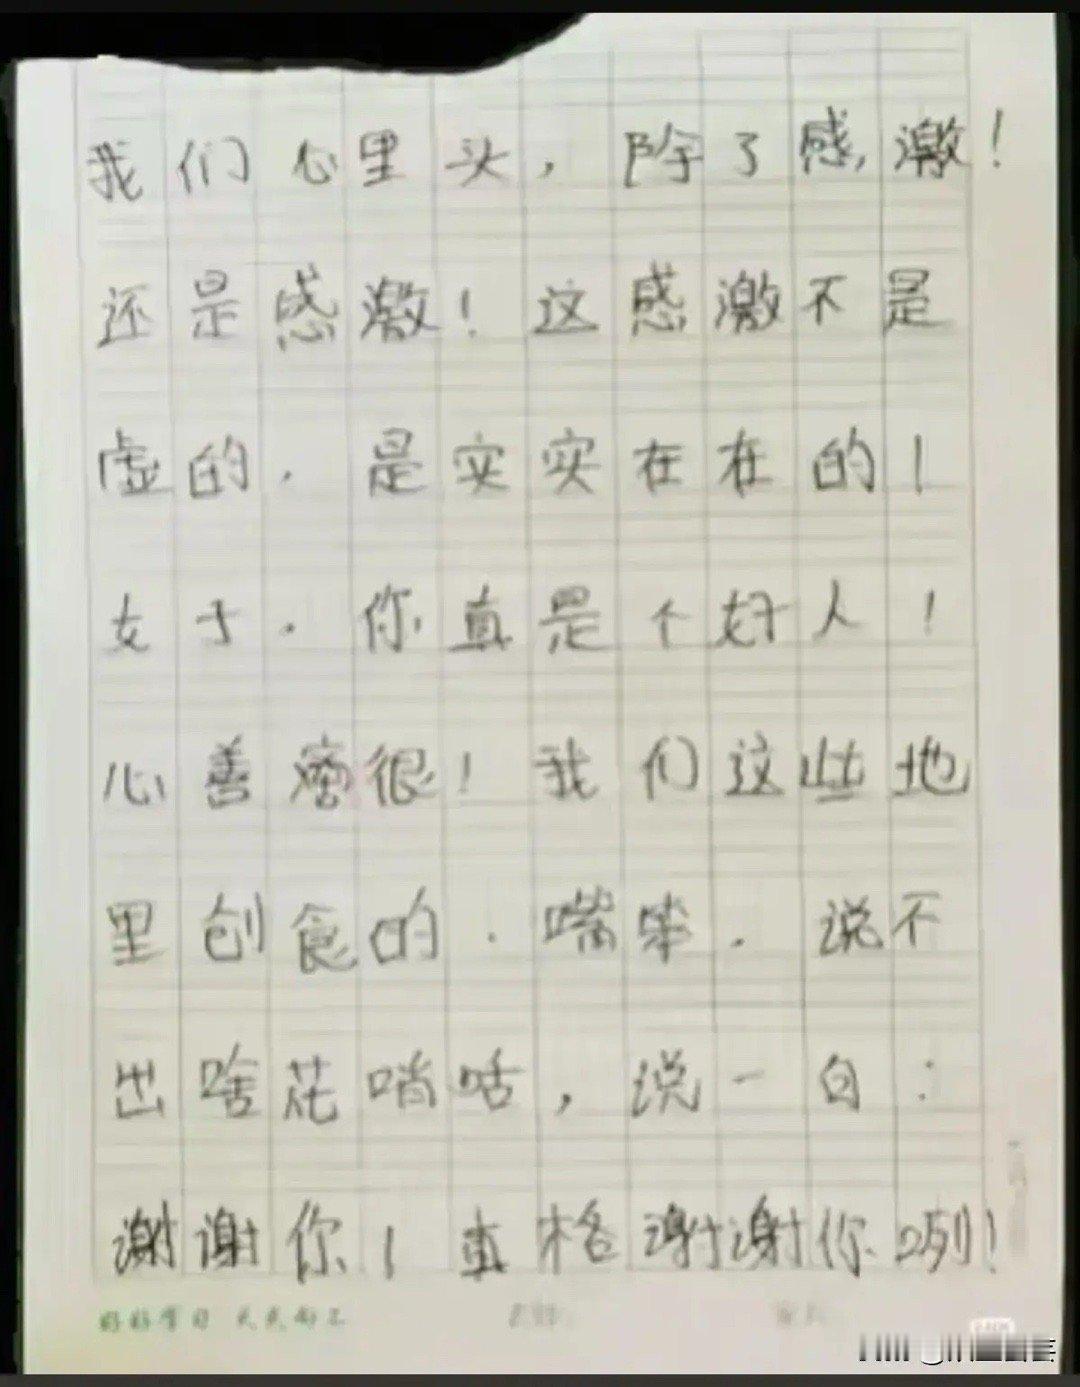 我们心里头，除了感激！
还是感激！这感激不是
虚的．是实实在在的！
女子．你真是个好人！
心善蛮很！我们这些地
里创食的．嘴笨．说不
出啥花哨话，说一白：
谢谢你！真格谢谢你咧！
好好学习 天天向上